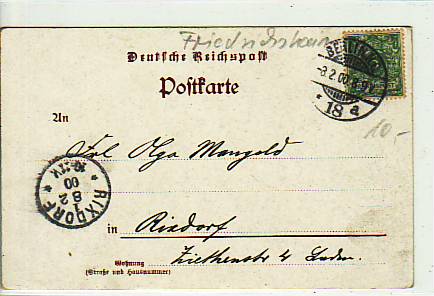 Friedrichshain
Deutsche Reichspost
Postkarte
BERLIN
-8.2.00.8-9V.
* 18 a
10,-
An
Frl Olga Mangold
RIXDORF
* 1 *
8 2
00
10-11V.
in Rixdorf
Wohnung
(Straße und Hausnummer)
Ziethenstr 4 Laden.